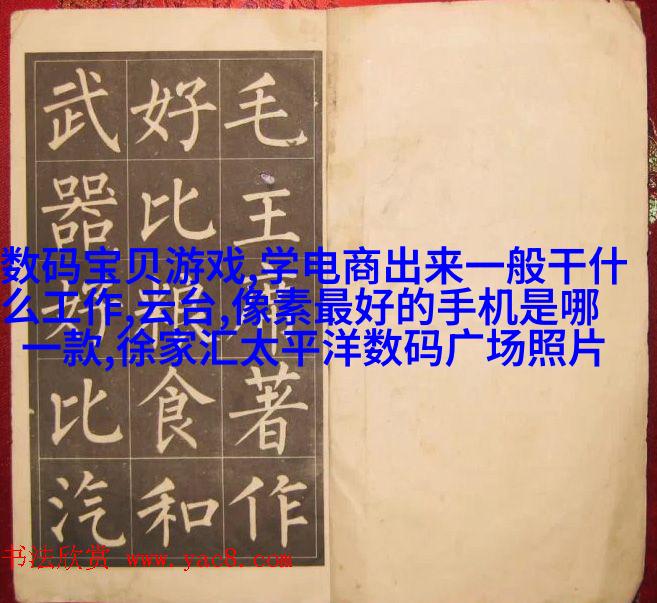 毛主席著作
好比粮食和
武器好比汽
数码宝贝游戏,学电商出来一般干什
么工作,云台,像素最好的手机是哪
一款,徐家汇太平洋数码广场照片
书法欣赏 www.yac8.com